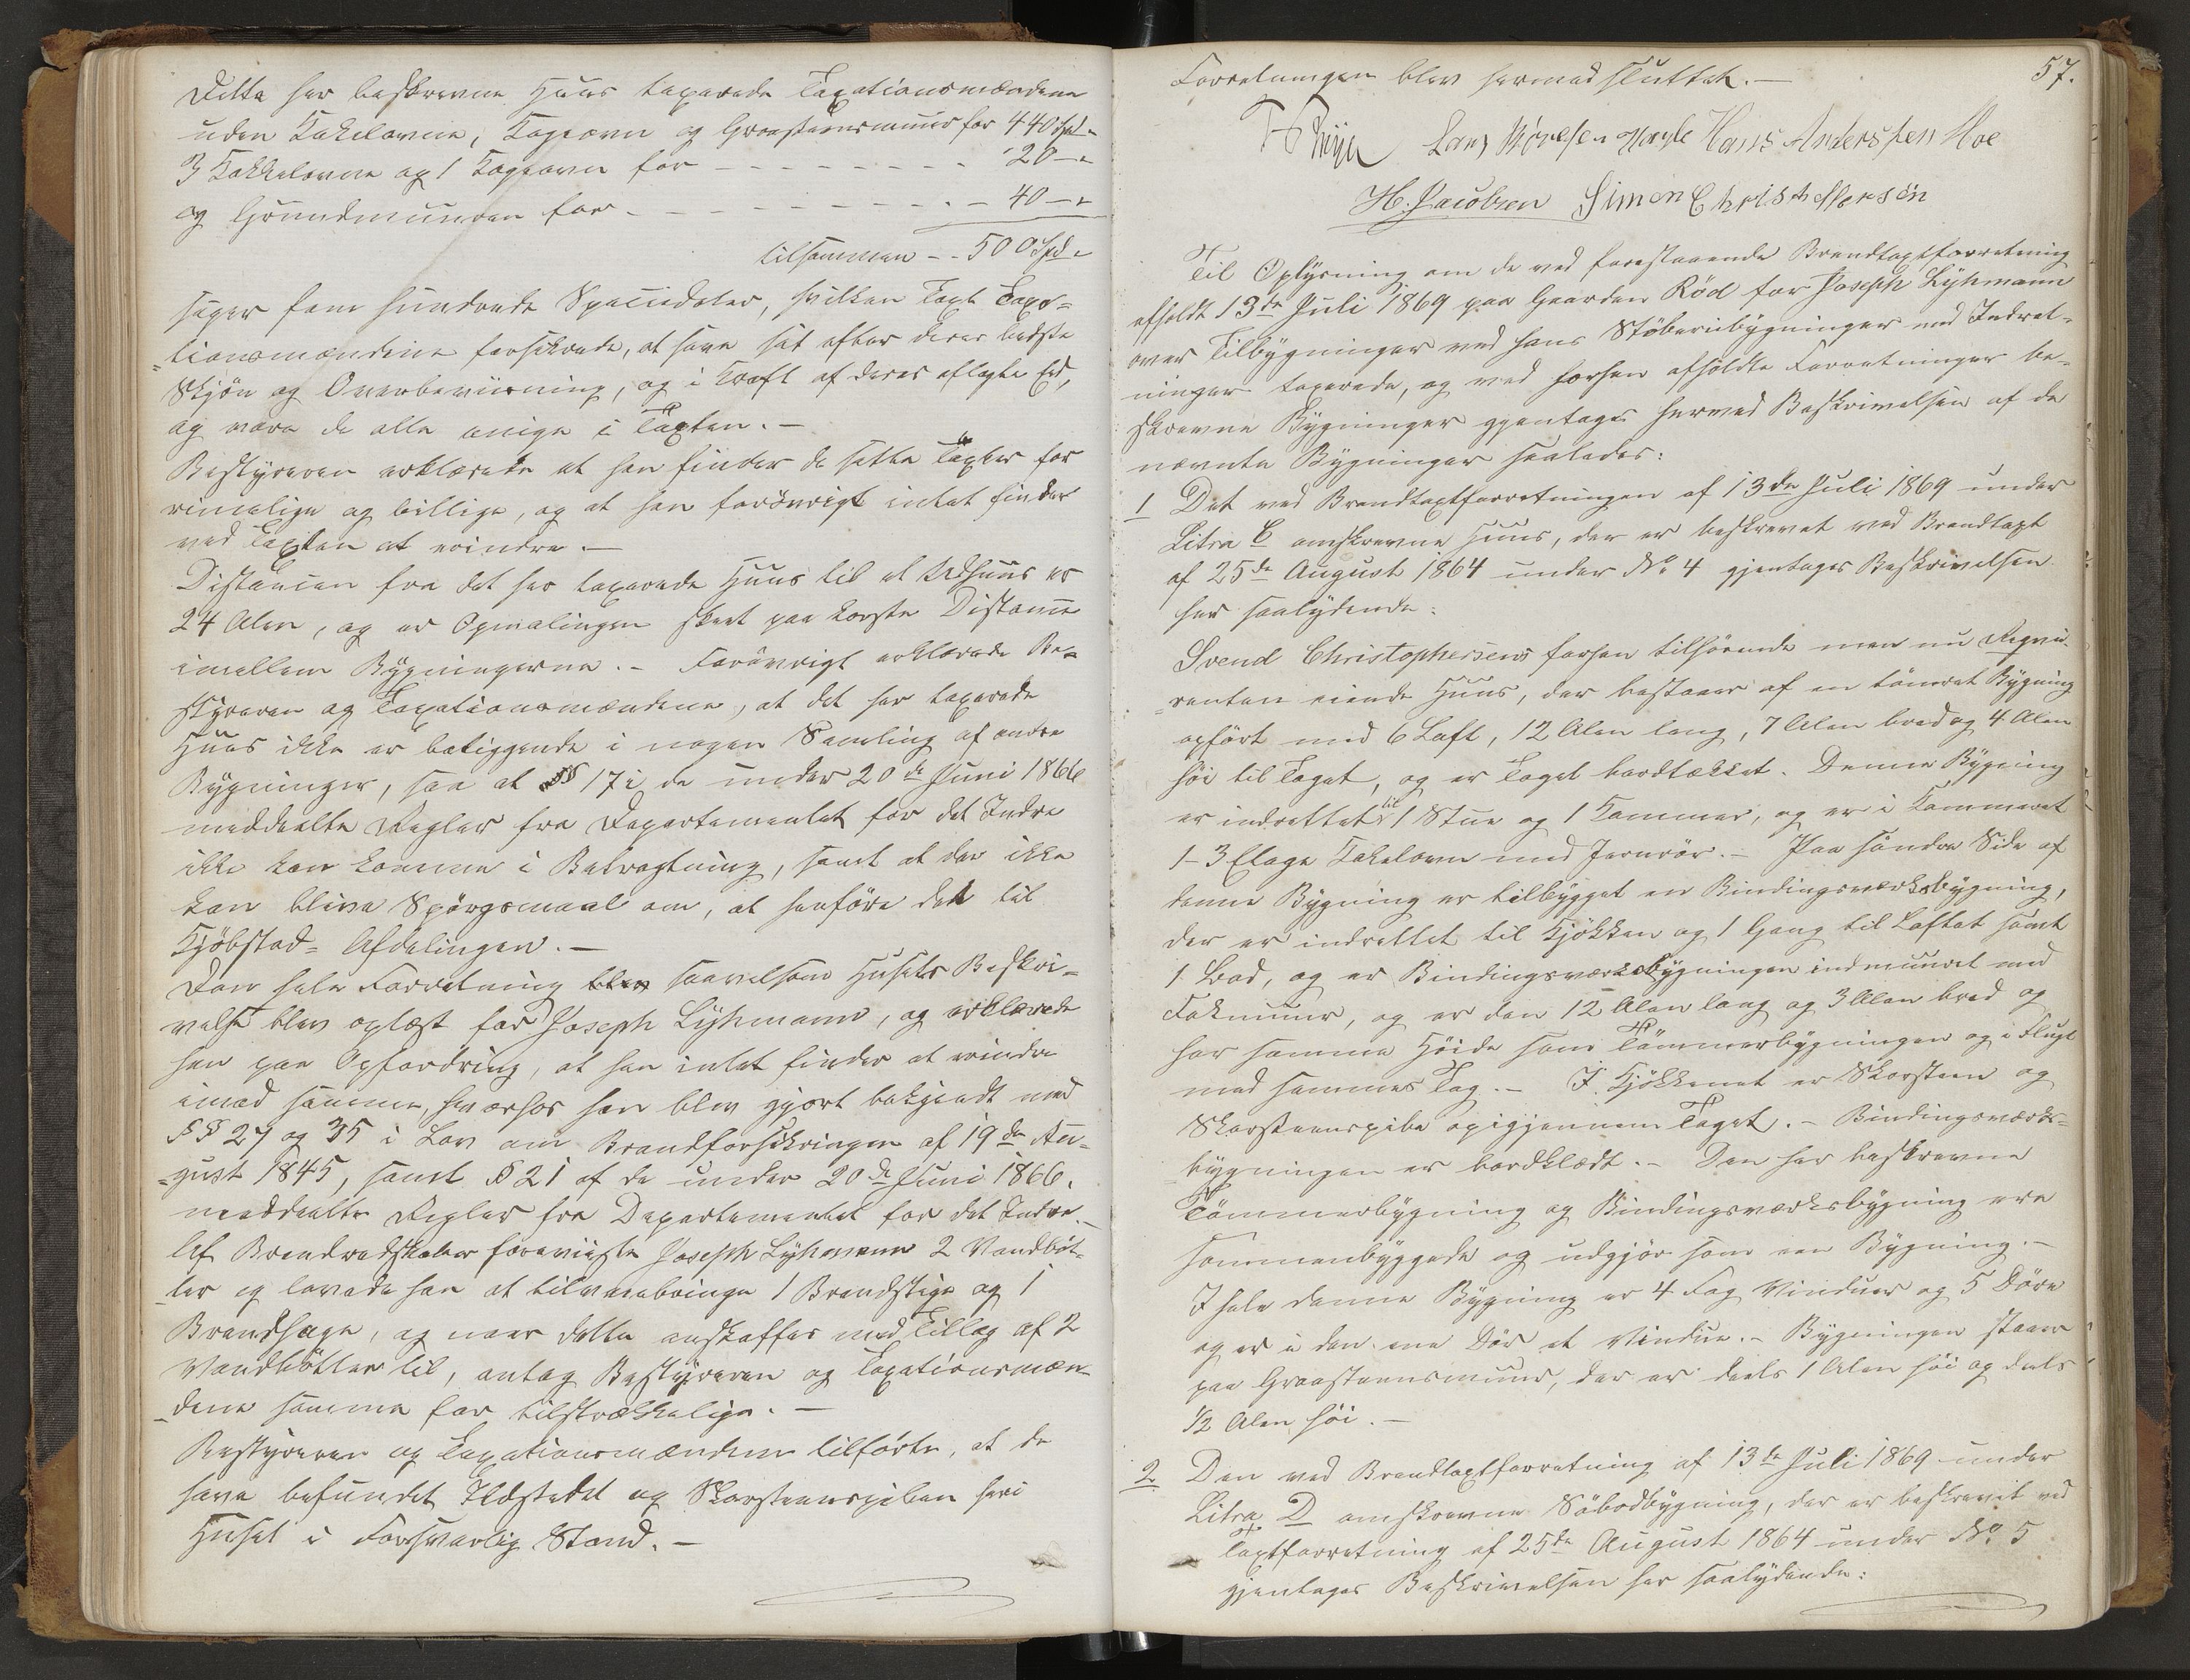 Dette her beskrevne Huus taxerede Taxationsmændene
uden Kakelovne, Kogeovn og Graasteensmuur for 440 Spd.
3 Kakkelovne og 1 Kogeovn for - - - - - - - 20 —
og Grundmuuren for - - - - - - - - - - 40 —
tilsammen - - 500 Spd.
siger fem hundrede Speciedaler, hvilken Taxt Taxa-
tionsmændene forsikrede, at have sat efter deres bedste
Skjøn og Overbeviisning, og i Kraft af deres aflagte Ed,
og vare de alle enige i Taxten. —
Bestyreren erklærede at han finder de satte Taxter for
rimelige og billige, og at han forøvrigt intet finder
ved Taxten at erindre. —
Distancen fra det her taxerede Huus til et Udhuus er
24 Alen, og er Opmaalingen skeet paa korste Distance
imellem Bygningerne. — Forøvrigt erklærede Be-
styreren og Taxationsmændene, at det her taxerede
Huus ikke er beliggende i nogen Samling af andre
Bygninger, saa at §§ 17 i de under 20de Juni 1866
meddeelte Regler fra Departementet for det Indre
ikke kan komme i Betragtning, samt at der ikke
kan blive Spørgsmaal om, at henføre det til
Kjøbstad-Afdelingen. —
Den hele Forretning blev saavelsom Husets Beskri-
velse blev oplæst for Joseph Lyhmann, og erklærede
han paa Opfordring, at han intet finder at erindre
imod samme, hvorhos han blev gjort bekjendt med
§§ 27 og 35 i Lov om Brandforsikringen af 19de Au-
gust 1845, samt § 21 af de under 20de Juni 1866.
meddeelte Regler fra Departementet for det Indre. —
Af Brandredskaber foreviiste Joseph Lyhmann 2 Vandbøt-
ter og lovede han at tilveiebringe 1 Brandstige og 1
Brandhage, og naar dette anskaffes med Tillæg af 2
Vandbøtter til, antog Bestyreren og Taxationsmæn-
dene samme for tilstrækkelige. —
Bestyreren og Taxationsmændene tilførte, at de
have befundet Ildstedet og Skorsteenspiben heri
Huset i forsvarlig Stand. —
57.
Forretningen blev hermed sluttet. —
Hans Anderssen Moe
H. Jacobsen Simen Christoffersen
Til Oplysning om de ved forestaaende Brandtaxtforretning
afholdt 13de Juli 1869 paa Gaarden Röd for Joseph Lyhmann
over Tilbygninger ved hans Støberibygninger med Indret-
ninger taxerede, og ved forhen afholdte Forretninger be-
skrevne Bygninger gjentages herved Beskrivelsen af de
nævnte Bygninger saaledes:
1 Det ved Brandtaxtforretningen af 13de Juli 1869 under
Litra C omskrevne Huus, der er beskrevet ved Brandtaxt
af 25de August 1864 under No 4 gjentages Beskrivelsen
her saalydende:
Svend Christophersens forhen tilhørende men nu Reqvi-
renten eiende Huus, der bestaaer af en tømret Bygning
opført med 6 Laft, 12 Alen lang, 7 Alen bred og 4 Alen
høi til Taget, og er Taget bordtækket. Denne Bygning
er indrettet til 1 Stue og 1 Kammer, og er i Kammeret
1 - 3 Etage Kakelovn med Jernrør. — Paa søndre Side af
denne Bygning er tilbygget en Bindingsværksbygning,
der er indrettet til Kjøkken og 1 Gang til Loftet samt
1 Bod, og er Bindingsværksbygningen indmuuret med
Fakmuur, og er den 12 Alen lang og 3 Alen bred og
har samme Høide som Tømmerbygningen og i Flugt
med sammes Tag. — I Kjøkkenet er Skorsteen og
Skorsteenspibe opigjennem Taget. — Bindingsværks-
bygningen er bordklædt. — Den her beskrevne
Tømmerbygning og Bindingsværksbygning ere
sammenbyggede og udgjør som een Bygning. —
I hele denne Bygning er 4 Fag Vinduer og 5 Døre
og er i den ene Dør et Vindue. — Bygningen staaer
paa Graasteensmuur, der er deels 1 Alen høi og deels
1/2 Alen høi. —
2 Den ved Brandtaxtforretning af 13de Juli 1869 under
Litra D omskrevne Søbodbygning, der er beskrevet ved
Taxtforretning af 25de August 1864 under No 5
gjentages Beskrivelsen her saalydende: